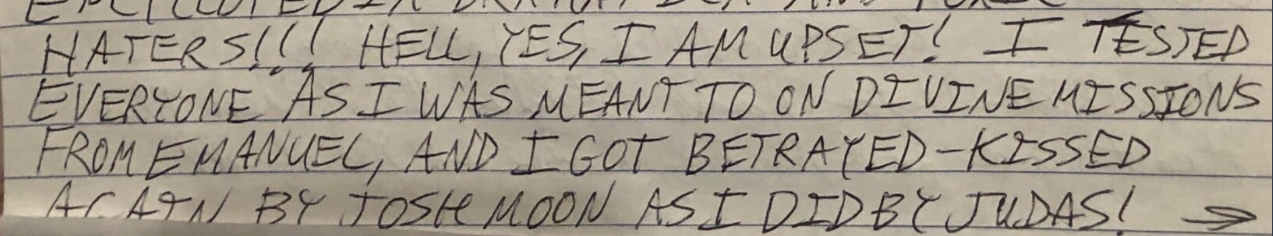 ENCYCLOPEDIA DRAMATICA AND
HATERS!!! HELL, YES, I AM UPSET! I TESTED
EVERYONE AS I WAS MEANT TO ON DIVINE MISSIONS
FROM EMANUEL, AND I GOT BETRAYED-KISSED
AGAIN BY JOSH MOON AS I DID BY JUDAS! →